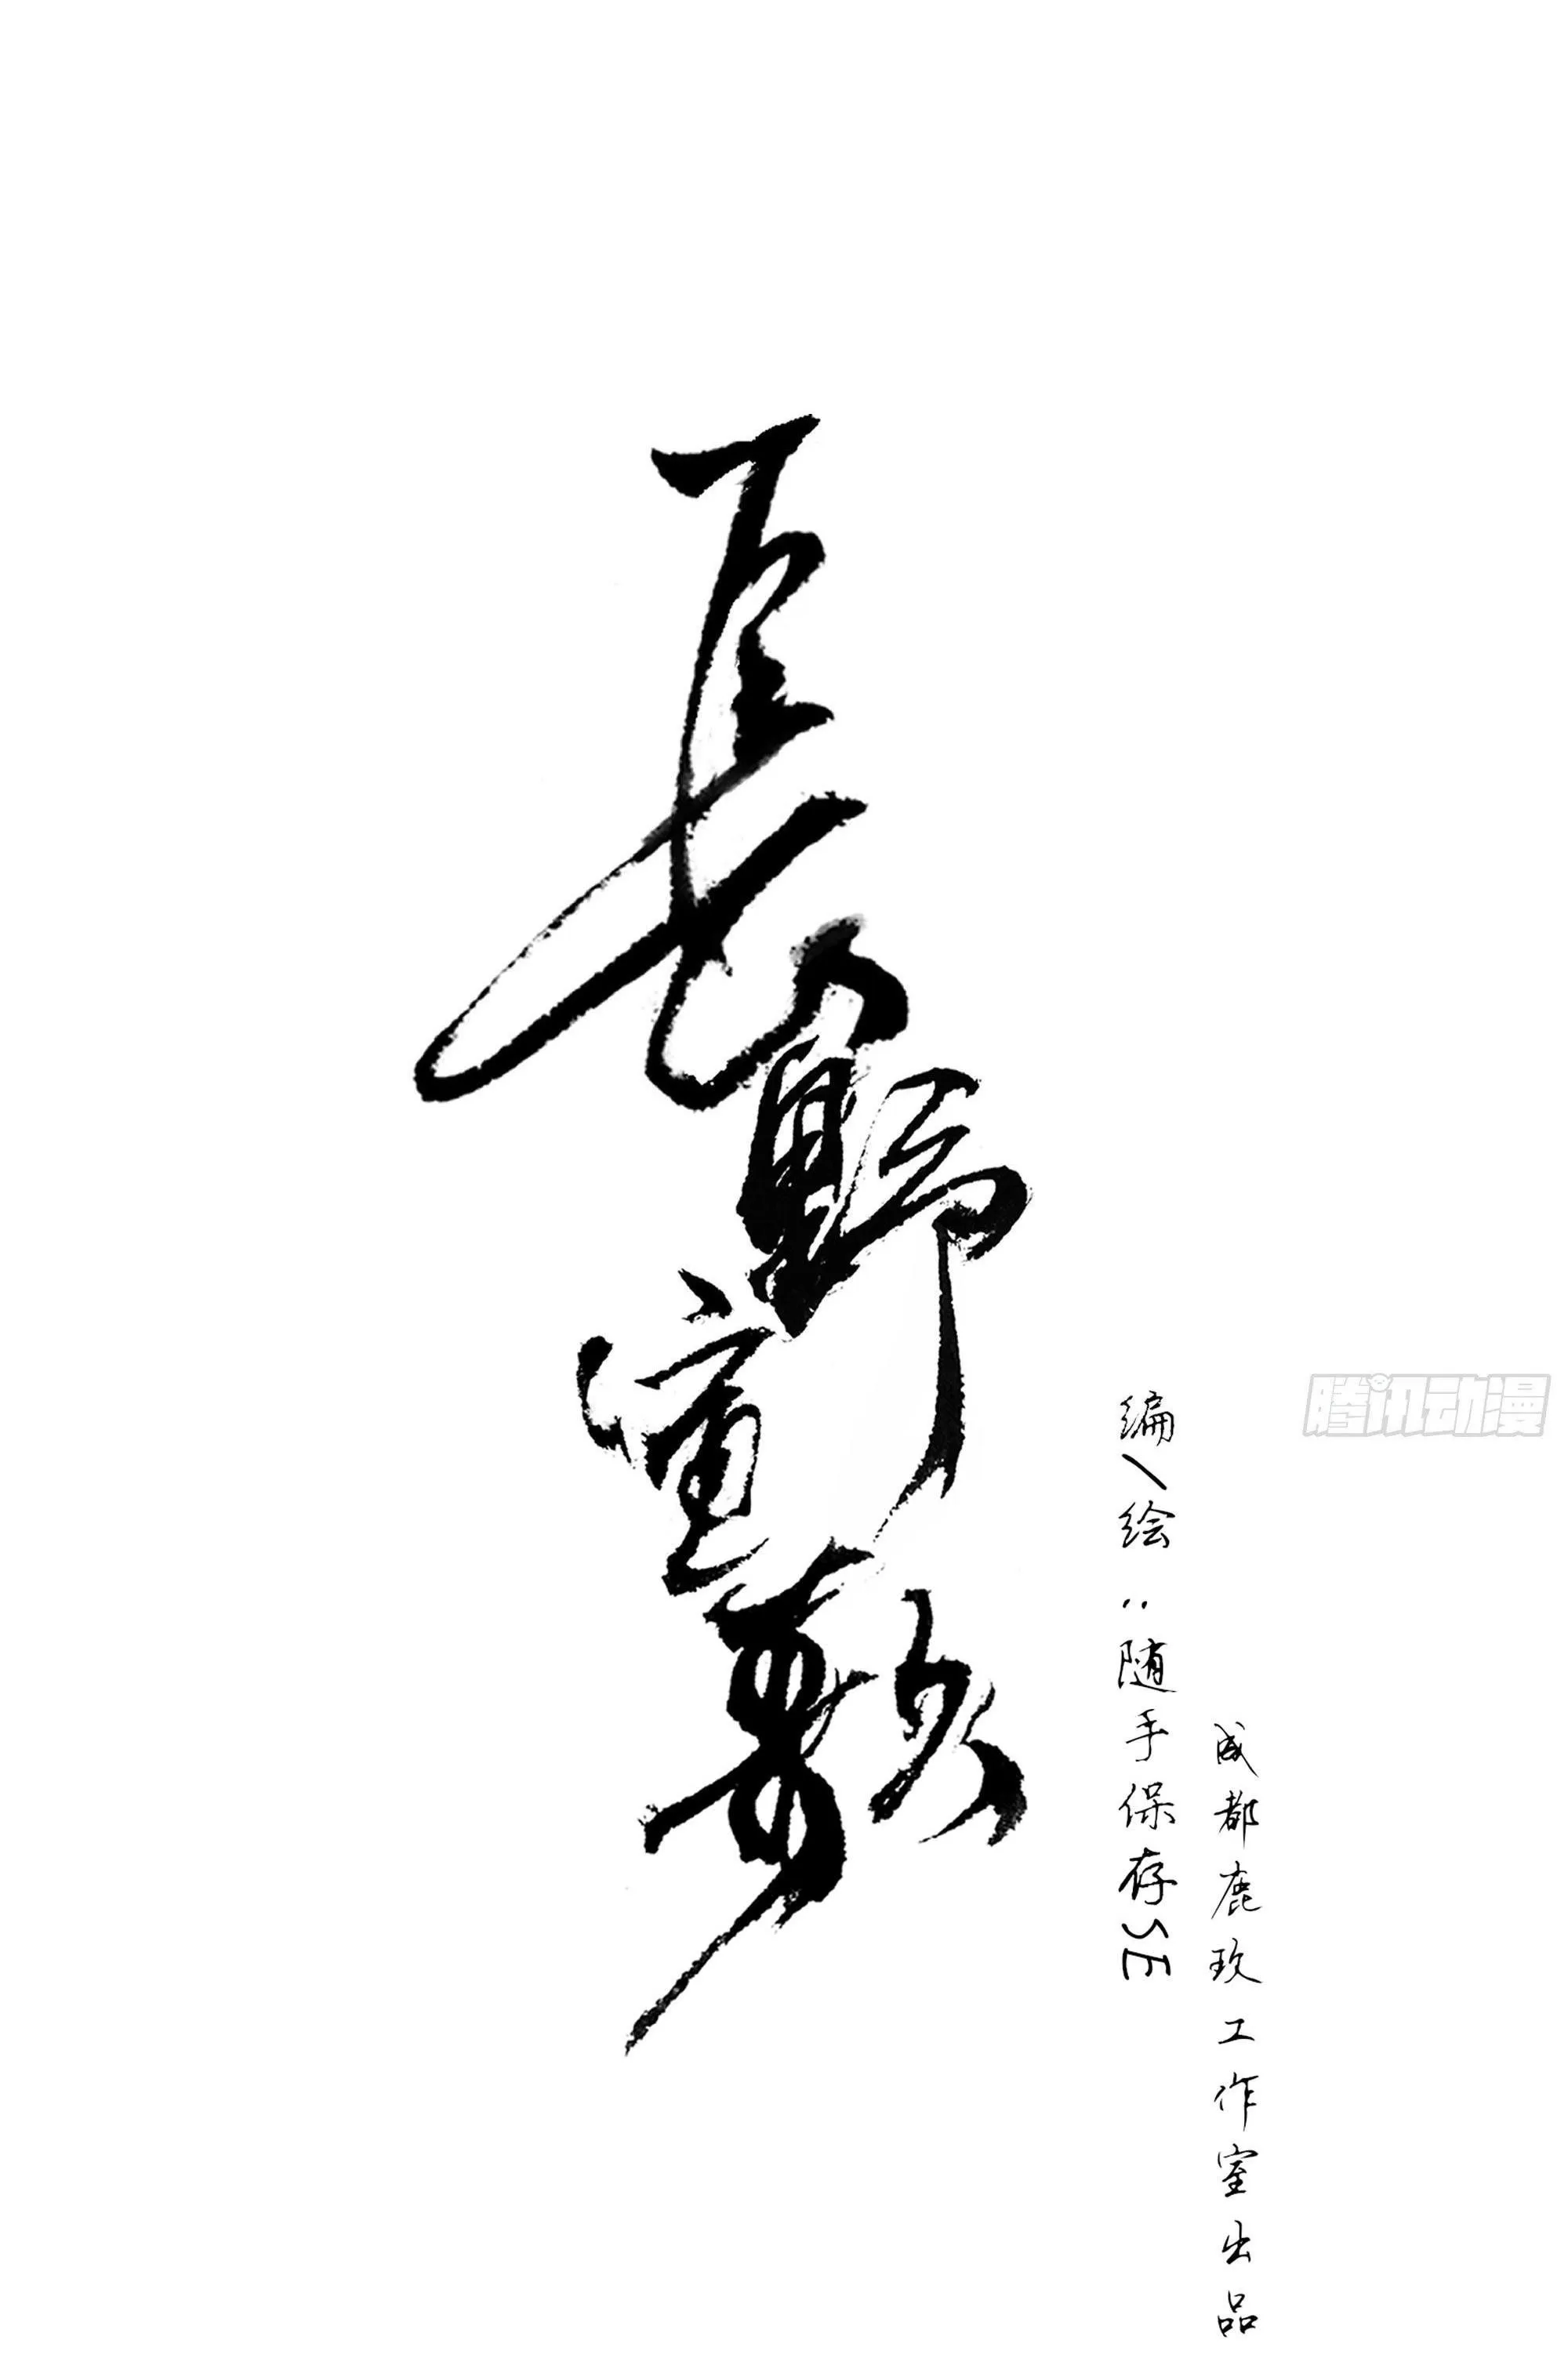 長野宣
编/绘：随手保存SE
成都鹿玖工作室出品
腾讯动漫